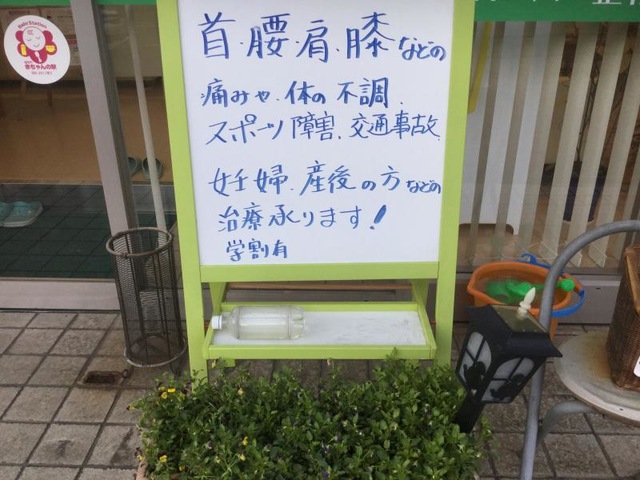 首.腰.肩.膝などの
痛みや.体の不調.
スポーツ障害.交通事故.
妊婦.産後の方などの
治療承ります!
学割有
Baby Station
赤ちゃんの駅